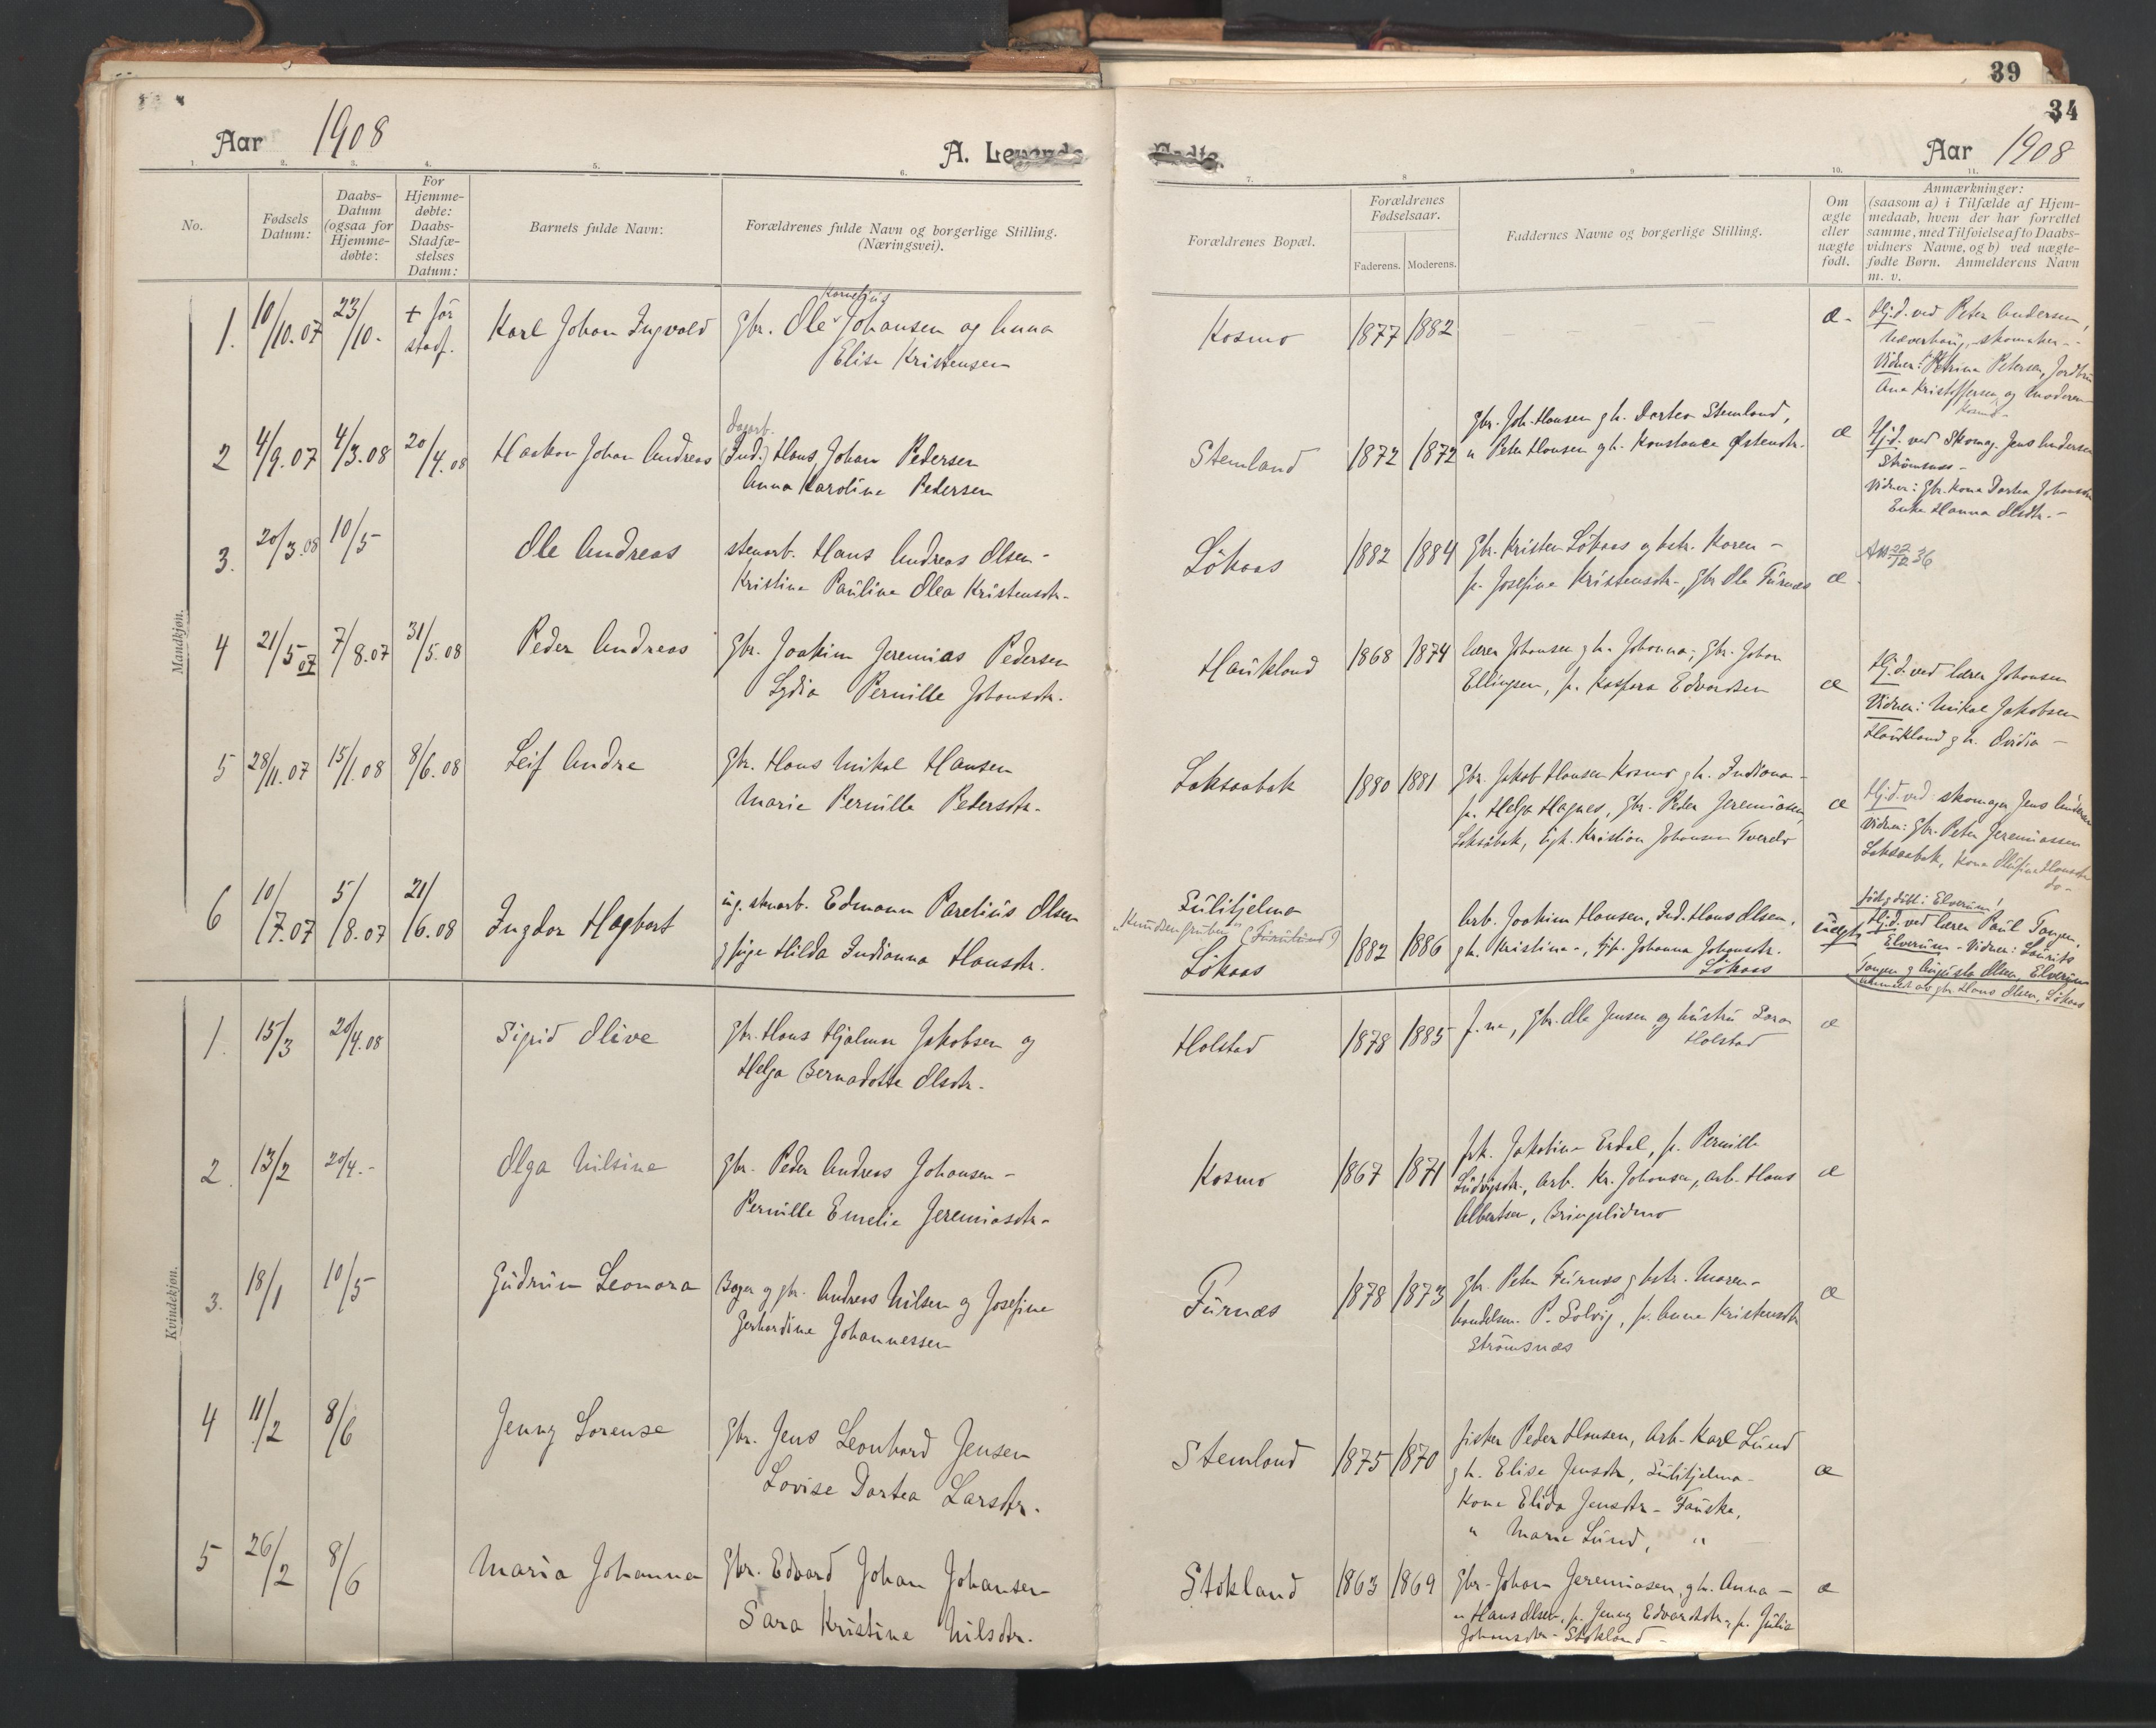 39
34
Aar 1908
A. Levende Fødte.
Aar 1908
1. 2. 3. 4. 5. 6. 7. 8 9 10. 11.
No.
Fødsels Datum:
Daabs-Datum (ogsaa for Hjemme-døbte:
For Hjemme-døbte: Daabs-Stadfæ-stelses Datum:
Barnets fulde Navn:
Forældrenes fulde Navn og borgerlige Stilling.
(Næringsvei).
Forældrenes Bopæl.
Forældrenes Fødselsaar.
Faderens. Moderens.
Faddernes Navne og borgerlige Stilling.
Om ægte eller uægte født.
Anmærkninger:
(saasom a) i Tilfælde af Hjem-
medaab, hvem der har forrettet
samme, med Tilføielse af to Daabs-
vidners Navne, og b) ved uægte-
fødte Børn. Anmelderens Navn
m. v.
Mandkjøn.
1. 10/10.07 23/10. + før stadf. Karl Johan Ingvald
Kornelius
Gbr. Ole Johansen og Anna
Elise Kristensen
Kosmo 1877 1882 — — — æ.
Hj.d. ved Peter Andersen,
skomaker
Vidner: Petrina Petersen,
Ana Kristoffersen, og Moderen
Kosmo
2 4/9.07 4/3.08 20/4.08 Haakon Johan Andreas
Dagarb.
(Ind.) Hans Johan Pedersen
Anna Karoline Pedersen
Stemland 1872 1872
Gbr. Joh. Hansen g h. Dortea Stemland,
" Peter Hansen g h. Konstance Østensdr.
æ
Hj.d. ved Skomag. Jens Andersen
Strømsnes
Vidner: Gbr. Kone Dortea Johansdr
Enke Hanna Olsdtr.
3. 20/3.08 10/5 Ole Andreas
stenarb. Hans Andreas Olsen
Kristine Pauline Olea Kristensdtr.
Løkaas 1882 1884
Gbr. Kristen Løkaas og hstr. Karen
p. Josefine Kristensdtr., Gbr Ole Furnes
æ
22/12 36
4 21/5 07 7/8.07 31/5.08 Peder Andreas
Gbr. Joakim Jeremias Pedersen
Lydia Pernille Johansdtr.
Haukland 1868 1874
lærer Johansen g h. Johanna, Gbr. Johan
Ellingsen, p. Kaspara Edvardsen
æ
Hj.d. ved lærer Johansen
Vidner: Mikal Jakobsen
Haukland g h. Ovidia
5 28/11.07 15/1.08 8/6.08 Leif Andre
Gbr. Hans Mikal Hansen
Marie Pernille Pedersdtr.
Laksaabak 1880 1881
Gbr. Jakob Hansen Kosmo g h. Indiana
p. Helga Hagnes, Gbr. Peder Jeremiasen,
Laksåbak, Ugk. Kristian Johansen Tverelv
æ
Hj.d. ved skomager Jens Andersen
Vidner: Gbr. Peter Jeremiassen
Laksaabak, Kone Hansdtr
do
6 10/7.07 5/8.07 21/6.08 Ingdor Hagbart
ug. stenarb. Edmann Parelius Olsen
g pige Hilda Indianna Hansdtr.
Sulitjelma
"Knudsengruben" (Furulund)
Løkaas 1882 1886
Arb. Joakim Hansen, Ind. Hans Olsen,
g h. Kristine, tjp. Johanna Johansdtr.
Løkaas
uægte
født og døbt i Elverum!
Hj.d. ved lærer Paul Tangen,
Elverum. Vidner: Laurits
Tangen g Augusta Olsen, Elverum
anmeldt av gbr Hans Olsen, Løkaas
Kvindekjøn.
1. 15/3 20/4.08 Sigrid Olive
Gbr. Hans Hjalmar Jakobsen og
Helga Bernadotte Olsdtr.
Holstad 1878 1885
f.ne, Gbr. Ole Jensen og hustru Sara
Holstad
æ
2. 13/2 20/4. Olga Nilsine
Gbr. Peder Andreas Johansen
Pernille Emelie Jeremiasdtr.
Kosmo 1867 1871
frk. Jakobine Erdal, p. Pernille
Ludvigsdtr., Arb. Kr. Johansen, Arb. Hans
Albertsen, Bringslidmo
æ
3. 18/1 10/5 Gudrun Leonora
Bager og gbr. Andreas Nilsen og Josefine
Gerhardine Johannessen
Furnes 1878 1873
Gbr. Peter Furnæs g hstr. Maren
handelsm. P. Solvig, p. Anna Kristensdtr
Strømsnæs
æ
4 11/2 8/6 Jenny Lorense
Gbr. Jens Leonhard Jensen
Lovise Dortea Larsdtr.
Stemland 1875 1870
fisker Peder Hansen, Arb. Karl Lund
g h. Elise Jensdtr, Sulitjelma
Kone Elida Jensdtr. Fauske,
" Marie Lund, "
æ
5 26/2 8/6 Maria Johanna
Gbr. Edvard Johan Johansen
Sara Kristine Nilsdtr.
Stokland 1863 1869
Gbr. Johan Jeremiasen, g h. Anna —
" Hans Olsen, p. Jenny Edvardsdtr., p. Julia
Johansdtr. Stokland
æ